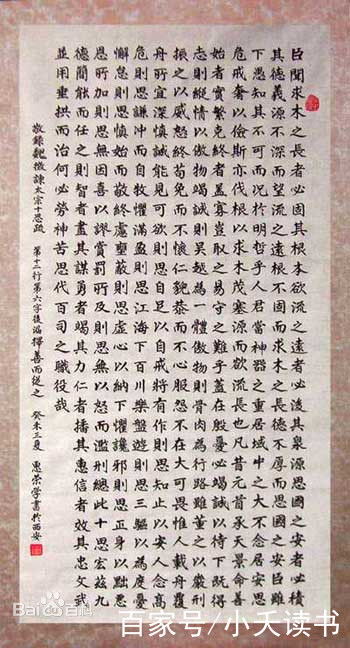 臣聞求木之長者必固其根本欲流之遠者必浚其泉源思國之安者必積
其德義源不深而望流之遠根不固而求木之長德不厚而思國之安臣雖
下愚知其不可而況於明哲乎人君當神器之重居域中之大不念居安思
危戒奢以儉斯亦伐根以求木茂塞源而欲流長也凡昔元首承天景命善
始者實繁克終者蓋寡豈取之易守之難乎蓋在殷憂必竭誠以待下既得
志則縱情以傲物竭誠則吳越為一體傲物則骨肉為行路雖董之以嚴刑
振之以威怒終苟免而不懷仁貌恭而不心服怨不在大可畏惟人載舟覆
舟所宜深慎誠能見可欲則思自足以自戒將有作則思知止以安人念高
危則思謙沖而自牧懼滿盈則思江海下百川樂盤遊則思三驅以為度憂
懈怠則思慎始而敬終慮壅蔽則思虛心以納下懼讒邪則思正身以黜惡
恩所加則思無因喜以謬賞罰所及則思無以怒而濫刑總此十思宏茲九
德簡能而任之則智者盡其謀勇者竭其力仁者播其惠信者效其忠文武
並用垂拱而治何必勞神苦思代百司之職役哉
敬錄魏徵諫太宗十思疏 第十二行第六字後漏擇善而從之 癸未三夏 惠榮學書於西安
Bai百科
百家号/小夭读书